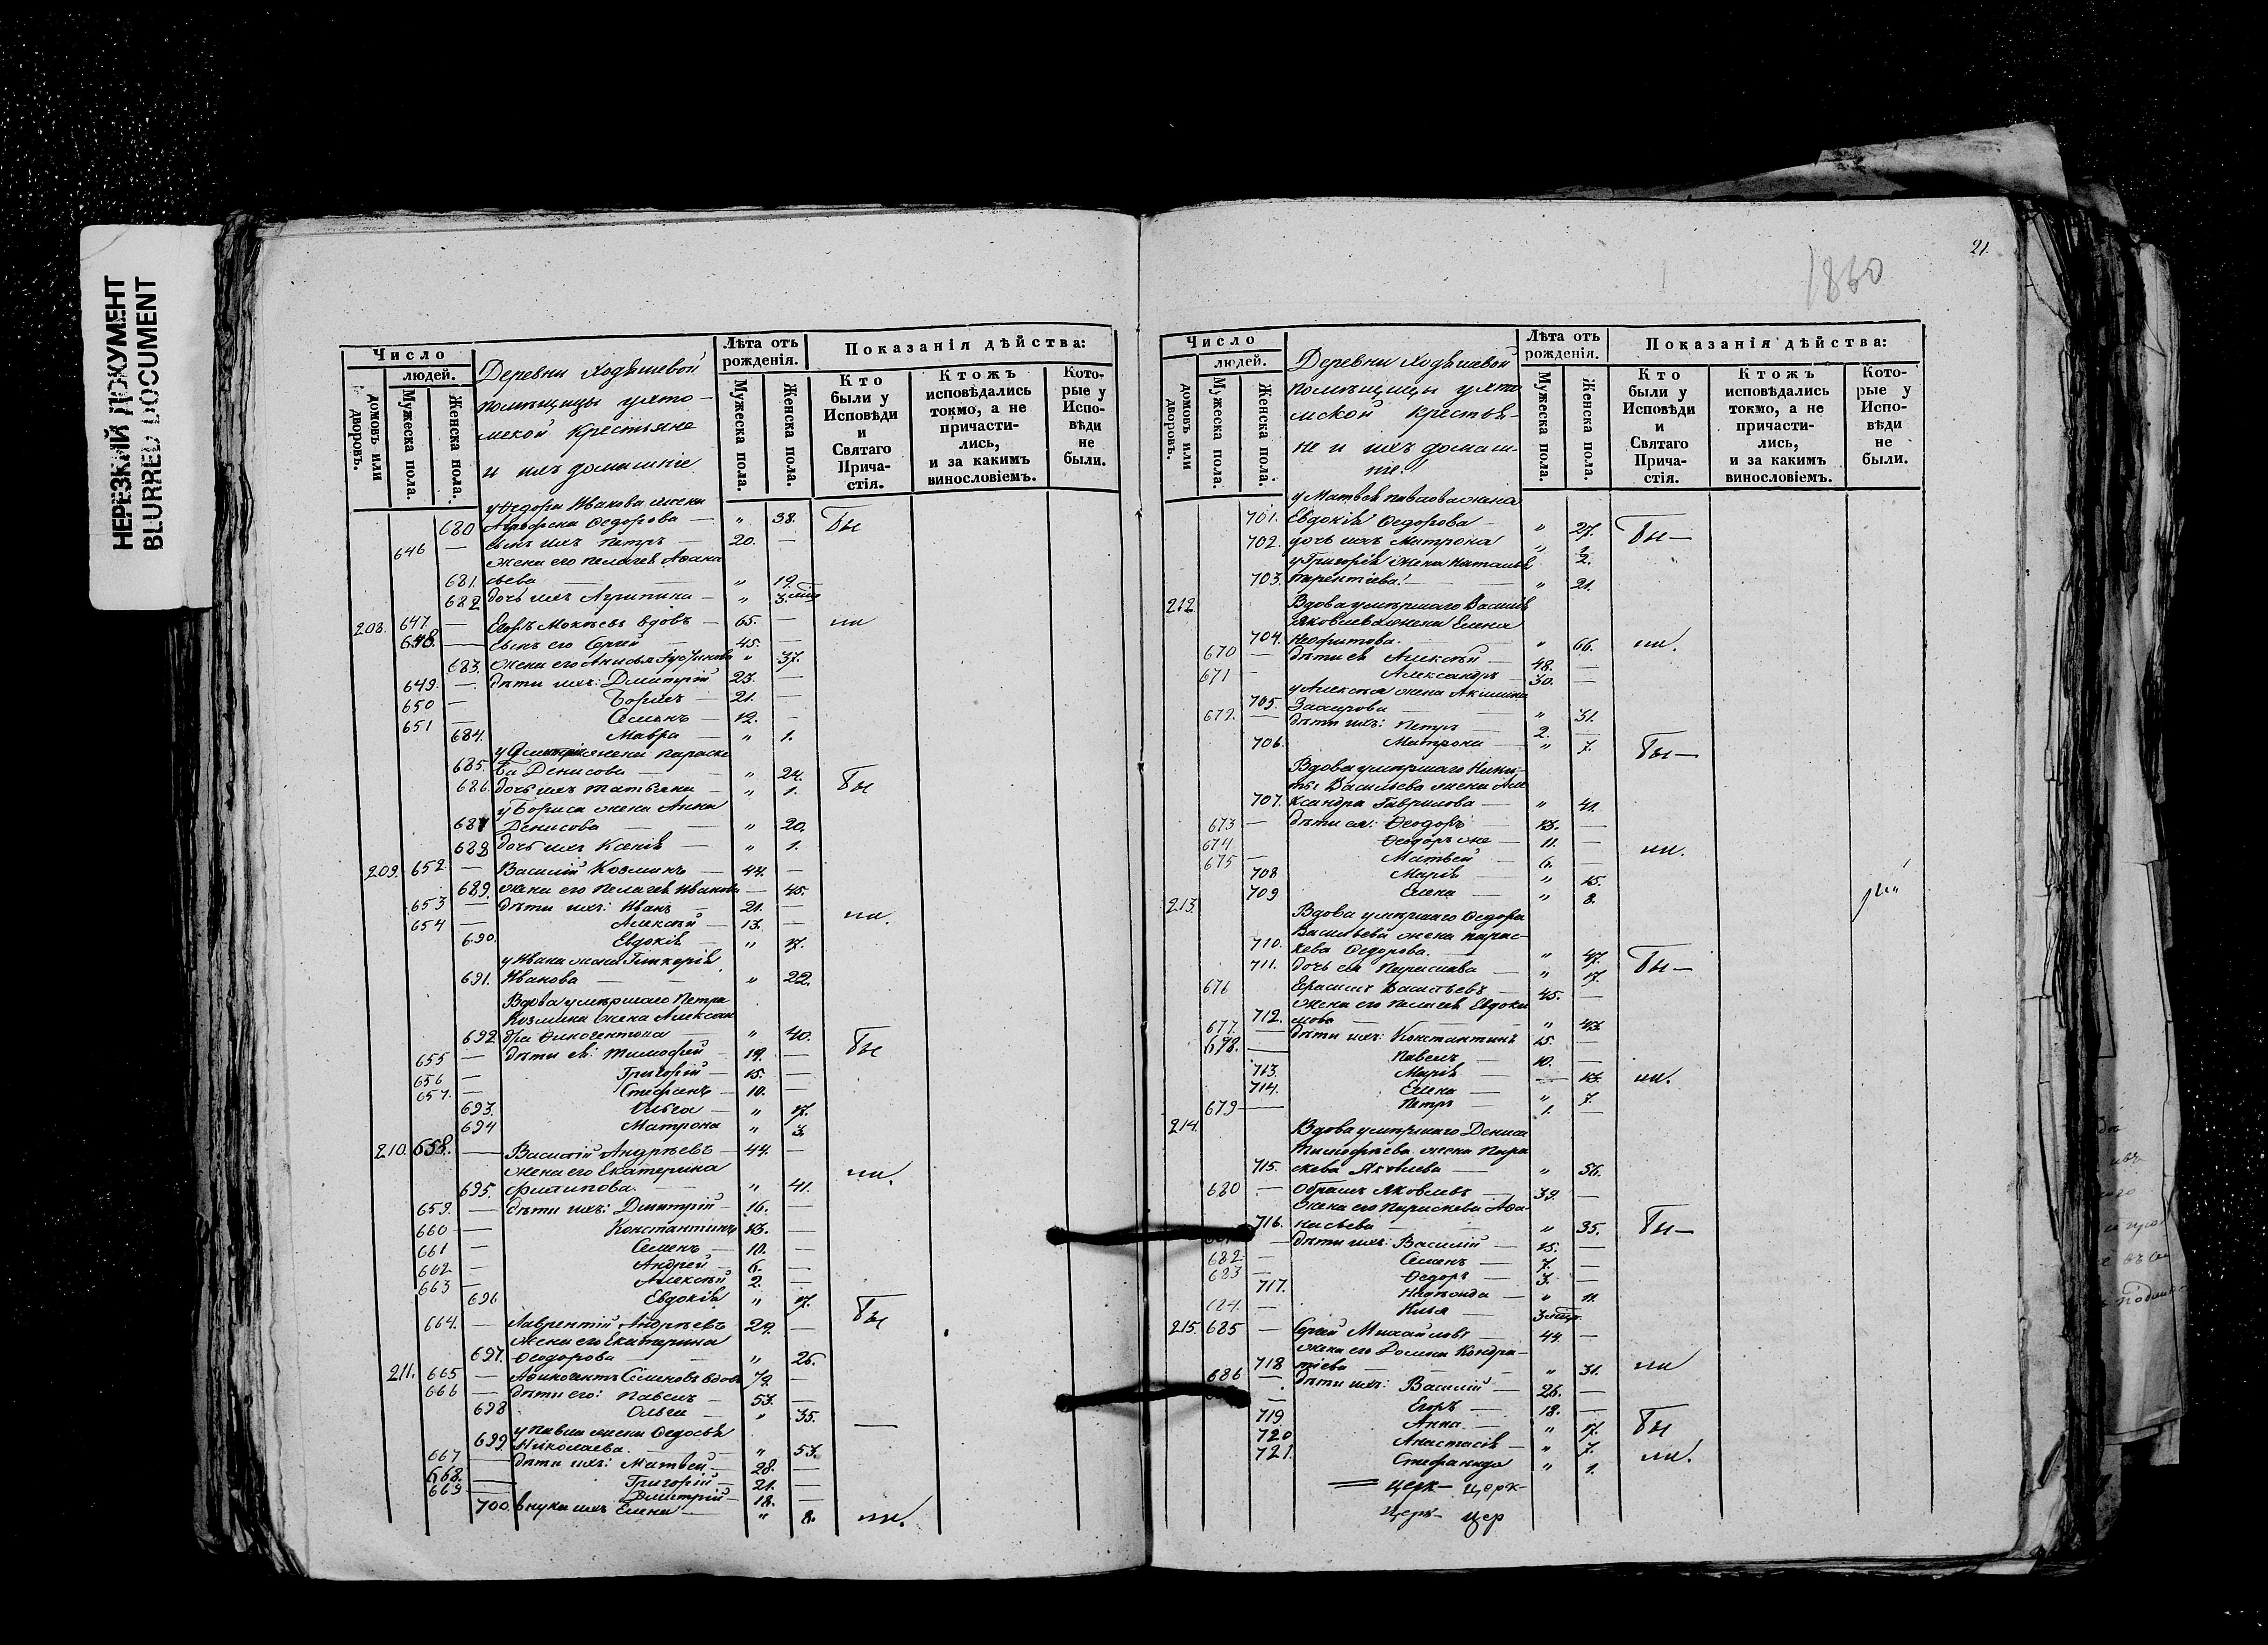 НЕРЕЗКИЙ ДОКУМЕНТ
BLURRED DOCUMENT
Число
людей.
домовъ или дворовъ.
Мужеска пола.
Женска пола.
Деревни Ходяшевой
помѣщицы ухто-
мской Крестьяне
и ихъ домашніе
Лѣта отъ рожденія.
Мужеска пола.
Женска пола.
Показанія дѣйства:
Кто были у Исповѣди и Святаго Прича-стія.
Ктожъ исповѣдались токмо, а не причасти-лись, и за какимъ винословіемъ.
Кото-рые у Испо-вѣди не были.
у Ѳедора Ивакова жена
680 Ѳедорова — " 38. Бы
646 — сынъ ихъ Петръ — 20. —
жена его Пелагея Аѳана
681. сьева " 19
682 дочь ихъ Агрипина — " 3.
208. 647. — Егоръ Мокѣевъ вдовъ — 65. — ли
648. — сынъ его Сергей 45. —
683. жена его Анисья " 37.
649. — дѣти ихъ: Дмитрій 23. —
650 — Борисъ — 21. —
651 — Семенъ — 12. —
684. Мавра — " 1.
у Дмитрія жена Параске
685. ва Денисова — " 24.
686. дочь ихъ Татьяна — " 1. Бы
у Бориса жена Анна
687 Денисова — " 20.
688 дочь ихъ Ксенія — " 1.
209. 652. — Василій Козминъ — 44. —
689. жена его Пелагея Иванова — 45.
653 — дѣти ихъ: Иванъ — 21. — ли.
654 — Алексѣй — 13. —
690. Евдокія — " 17.
у Ивана жена Гликерія
691. Иванова — " 22.
Вдова умѣршаго Петра
Козмина жена Алексан
692 дра — " 40.
655 — дѣти ея: Тимофей — 19. — Бы
656 — Григорій — 15. —
657. — Стефанъ — 10. —
693. Ольга — " 17.
694 Матрона " 3.
210. 658. — Василій Андрѣевъ — 44. —
жена его Екатерина ли.
695. Филипова. " 41.
659. — дѣти ихъ: Дмитрій — 16. —
660 — Константинъ 13. —
661 — Семенъ — 10. —
662 — Андрей — 6. —
663 — Алексѣй 2. —
696 Евдокія " 17. Бы
664. — Лаврентій Андрѣевъ 29. —
жена его Екатерина
697. Ѳеодорова — " 26.
211. 665 — Семеновъ вдовъ 79. —
666 — дѣти его: Павелъ — 53. —
698 Ольга — " 35. —
у Павла жена Ѳедосья
699 Николаева. " 53.
667 — дѣти ихъ: Матвей — 28. —
668. — Григорій — 21. —
669 — Дмитрій — 18. —
700. внука ихъ Елена — " 8. ли.
21.
1830
Число
людей.
домовъ или дворовъ.
Мужеска пола.
Женска пола.
Деревни Ходяшевой
помѣщицы ухто
мской крестья-
не и ихъ домаш-
ніе!
Лѣта отъ рожденія.
Мужеска пола.
Женска пола.
Показанія дѣйства:
Кто были у Исповѣди и Святаго Прича-стія.
Ктожъ исповѣдались токмо, а не причасти-лись, и за какимъ винословіемъ.
Кото-рые у Испо-вѣди не были.
у Матвея Павлова жена
701. Евдокія Ѳедорова — " 27. Бы —
702. дочь ихъ Матрона " 2.
у Григорія жена Наталья
703. " 21.
212. Вдова умѣршаго Василія
Яковлева жена Елена
704. Неофитова. " 66. ли.
670 — дѣти ея Алексѣй — 48. —
671 — Александръ — 30. —
у Алексѣя жена Акилина
705. " 31.
672. — дѣти ихъ: Петръ — 2. —
706. Матрона — " 7. Бы —
Вдова умѣршаго Ники-
ты Васильева жена Але
707. ксандра Гаврилова — " 41.
673 — дѣти ея: Ѳеодоръ 13. —
674 Ѳеодоръ же — 11. — ли.
675 — Матвей — 6. —
708 Марія — " 15.
709 Елена — " 8.
213. Вдова умѣршаго Ѳедора
Васильева жена Парас-
710. кева Ѳедорова. " 47.
711. дочь ея Параскева " 17. Бы —
676 Герасимъ Васильевъ — 45. —
жена его Пелагея Евдоки
712. мова " 43
677. — дѣти ихъ: Константинъ 15. —
678. — Павелъ — 10. —
713. Марія — — 13. ли.
714. Елена — " 7.
679 — Петръ — 1. —
214. Вдова умѣршаго Дениса
Тимофѣева жена Пара
715. скева Яковлева — " 56.
680 — Яковлевъ 39. —
жена его Параскева Аѳа-
716. насьева — " 35. Бы —
— дѣти ихъ: Василій — 15. —
682 — Семенъ — 7. —
683 — Ѳедоръ — 3. —
717. " 11.
684. — Илья
215. 685 — Сергей Михайловъ 44. —
жена его Домна Кондра-
718 тіева — " 31. ли
686 — дѣти ихъ: Василій — 26. —
— Егоръ — 18. —
719. Анна — " 17. Бы
720 Анастасія — " 7.
721. Стефанида " 1. ли.
церк- церк-
церк- цер